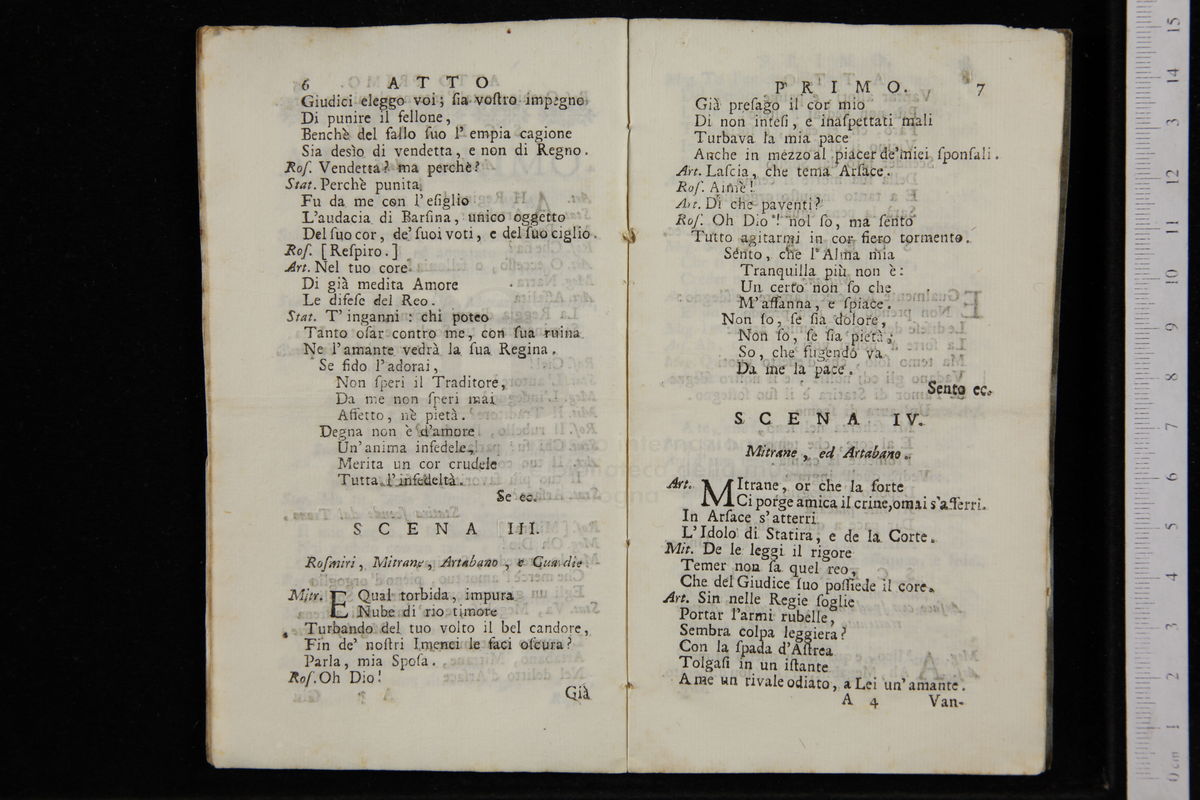 6 ATTO
Giudici eleggo voi; ſia voſtro impegno
Di punire il fellone,
Benchè del fallo ſuo l' empia cagione
Sia desìo di vendetta, e non di Regno.
Roſ. Vendetta? ma perchè?
Stat. Perchè punita
Fu da me con l'eſiglio
L'audacia di Barſina, unico oggetto
Del ſuo cor, de' ſuoi voti, e del ſuo ciglio.
Roſ. [Reſpiro.]
Art. Nel tuo core
Di già medita Amore
Le difeſe del Reo.
Stat. T' inganni: chi poteo
Tanto oſar contro me, con ſua ruina
Ne l'amante vedrà la ſua Regina.
Se fido l'adorai,
Non ſperi il Traditore,
Da me non ſperi mai
Affetto, nè pietà.
Degna non è d'amore
Un' anima infedele,
Merita un cor crudele
Tutta l'infedeltà.
Se ec.
SCENA III.
Roſmiri, Mitrane, Artabano, e Guardie
Mitr. E Qual torbida, impura
Nube di rio timore
Turbando del tuo volto il bel candore,
Fin de' noſtri Imenei le faci oſcura?
Parla, mia Spoſa.
Roſ. Oh Dio!
Già
PRIMO. 7
Già preſago il cor mio
Di non inteſi, e inaſpettati mali
Turbava la mia pace
Anche in mezzo al piacer de' miei ſponſali.
Art. Laſcia, che tema Arſace.
Roſ. Aimè!
Art. Di che paventi?
Roſ. Oh Dio! nol ſo, ma ſento
Tutto agitarmi in cor fiero tormento.
Sento, che l'Alma mia
Tranquilla più non è:
Un certo non ſo che
M'affanna, e ſpiace.
Non ſo, ſe ſia dolore,
Non ſo, ſe ſia pietà;
So, che fugendo va
Da me la pace.
Sento ec.
SCENA IV.
Mitrane, ed Artabano.
Art. MItrane, or che la ſorte
Ci porge amica il crine, omai s'afferri.
In Arſace s'atterri
L'Idolo di Statira, e de la Corte.
Mit. De le leggi il rigore
Temer non ſa quel reo,
Che del Giudice ſuo poſſiede il core.
Art. Sin nelle Regie ſoglie
Portar l'armi rubelle,
Sembra colpa leggiera?
Con la ſpada d'Aſtrea
Tolgaſi in un iſtante
A me un rivale odiato, a Lei un' amante.
A 4 Van-